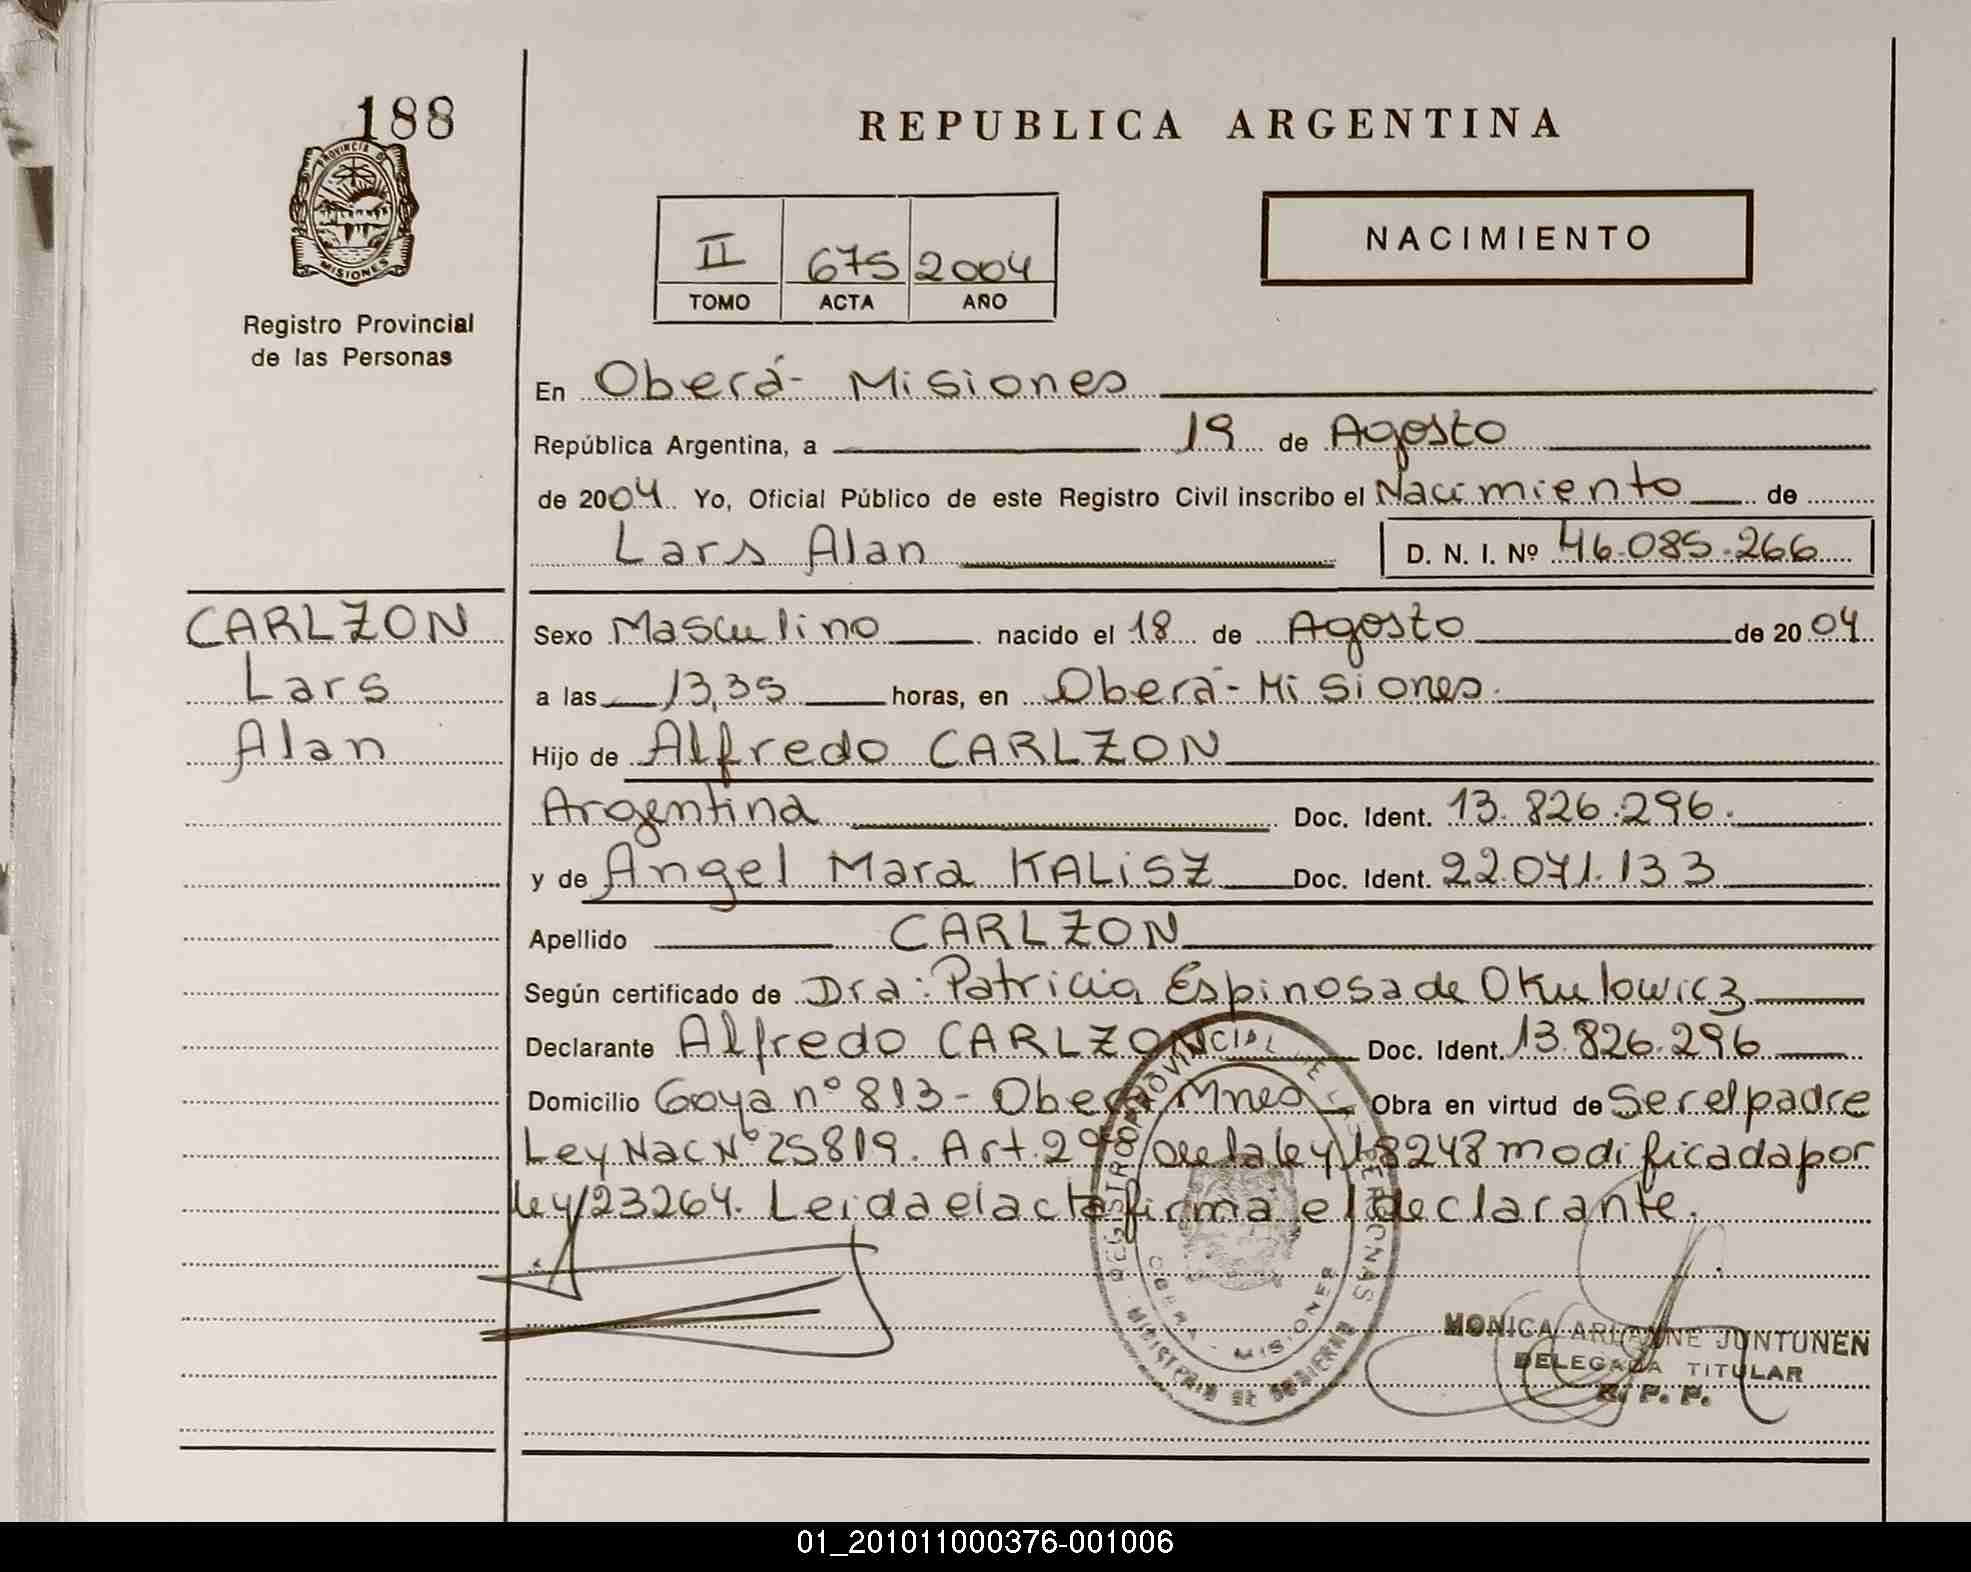 188
PROVINCIA DE
MISIONES
Registro Provincial
de las Personas
REPUBLICA ARGENTINA
II 675 2004
TOMO ACTA AÑO
NACIMIENTO
En Oberá- Misiones
República Argentina, a 19 de Agosto
de 2004 Yo, Oficial Público de este Registro Civil inscribo el Nacimiento de
Lars Alan D. N. I. Nº 46.085.266
CARLZON
Lars
Alan
Sexo Masculino nacido el 18 de Agosto de 2004
a las 13,35 horas, en Oberá-Misiones.
Hijo de Alfredo CARLZON
Argentina Doc. Ident. 13.826.296.
y de Angel Mara KALiSZ Doc. Ident. 22.071.133
Apellido CARLZON
Según certificado de Dra: Patricia Espinosa de Okulowicz
Declarante Alfredo CARLZON Doc. Ident. 13.826.296
Domicilio Goya nº 813- Oberá Mnes Obra en virtud de Ser el padre
Ley Nac Nº 25819. Art. 298 de la ley 18248 modificada por
ley 23264. Leida el acta firma el declarante.
REGISTRO PROVINCIAL DE LAS PERSONAS
OBERA - MISIONES
MINISTERIO DE GOBIERNO
MONICA ARIANNE JUNTUNEN
DELEGADA TITULAR
R. P. P.
01_201011000376-001006